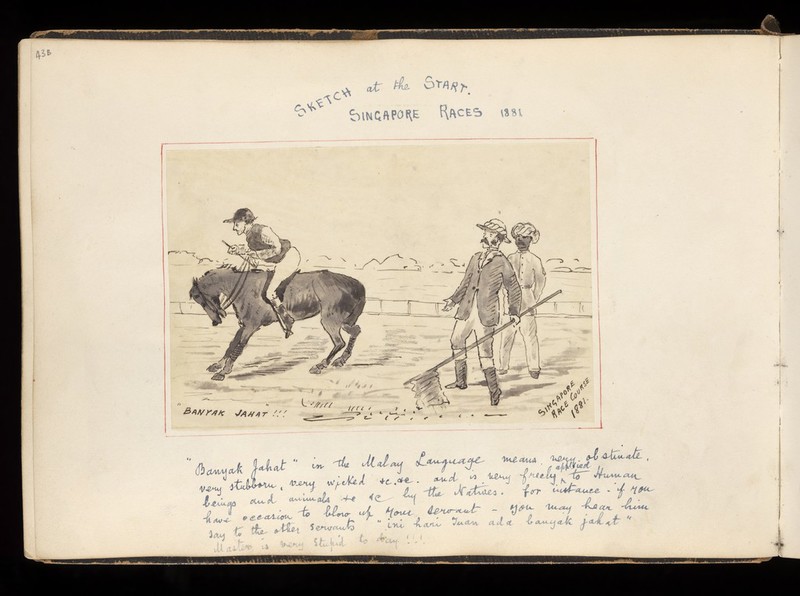 43B
SKETCH at the START.
SINGAPORE RACES 1881
BANYAK JAHAT !!!
SINGAPORE
RACE COURSE
1881.
"Banyak Jahat" in the Malay Language means very obstinate,
very stubborn, very wicked &c. &c. and is very freely applied to Human
beings and animals &c &c by the Natives. for instance. if you
have occasion to blow up your servant - you may hear him
say to the other servants "ini hari Tuan ada banyak jahat"
Master is very stupid to day !!!